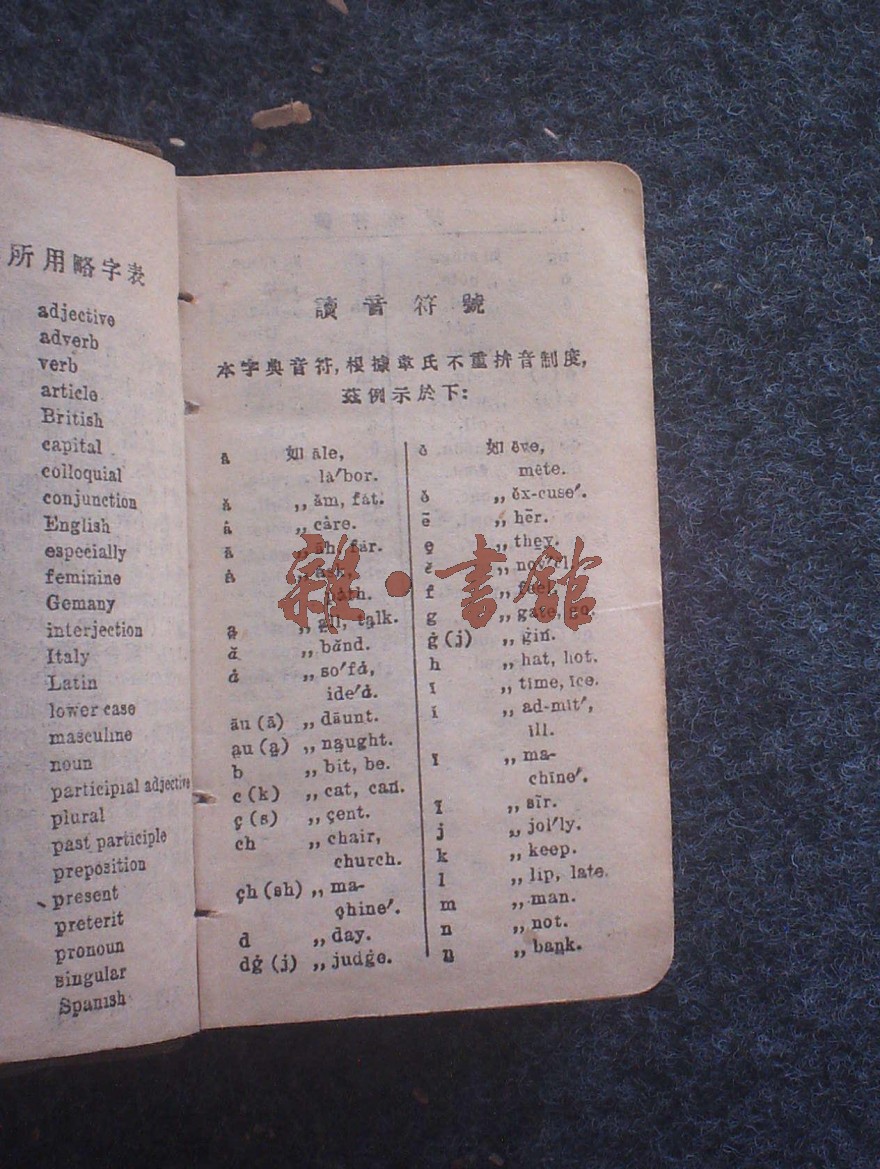 所用略字表
adjective
adverb
verb
article
British
capital
colloquial
conjunction
English
especially
feminine
Gemany
interjection
Italy
Latin
lower case
masculine
noun
participial adjective
plural
past participle
preposition
present
preterit
pronoun
singular
Spanish
讀音符號
本字典音符,根據韋氏不重拚音制度,
茲例示於下:
ā 如 āle,
lā′bor.
ă ,, ăm, fat.
â ,, câre.
ä ,, äh, fär.
ȧ ,, ȧsk,
pȧth.
a̤ ,, a̤ll, ta̤lk.
,, bănd.
,, so′fȧ,
ide′ȧ.
äu (ä) ,, däunt.
a̤u (a̤) ,, na̤ught.
b ,, bit, be.
c (k) ,, cat, can.
ç (s) ,, çent.
ch ,, chair,
church.
çh (sh) ,, ma-
çhine′.
d ,, day.
dġ (j) ,, judġe.
ē 如 ēve,
mēte.
ĕ ,, ĕx-cuse′.
ẽ ,, hẽr.
e̱ ,, the̱y.
,, nov′el.
f ,, feel,
g ,, gate, go.
ġ (j) ,, ġin.
h ,, hat, hot.
ī ,, tīme, īce.
ĭ ,, ad-mĭt′,
ĭll.
ï ,, ma-
chïne′.
ĩ ,, sĩr.
j ,, jol′ly.
k ,, keep.
l ,, lip, late.
m ,, man.
n ,, not.
ṉ ,, baṉk.
雜·書館